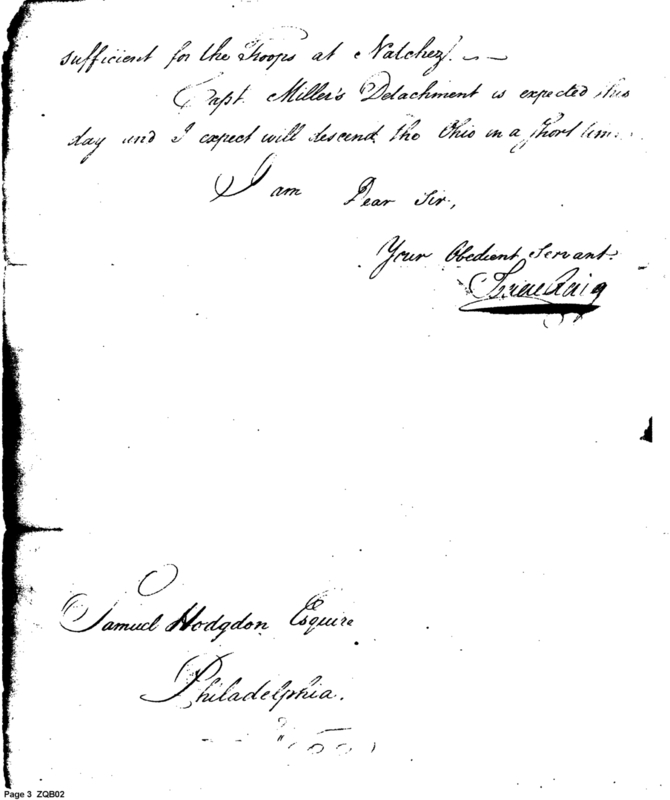 sufficient for the Troops at Natchez.
Capt. Miller's Detachment is expected this
day and I expect will descend the Ohio in a short time.
I am Dear Sir,
Your Obedient Servant.
Isaac Craig
Samuel Hodgdon Esquire
Philadelphia.
Page 3 ZQB02